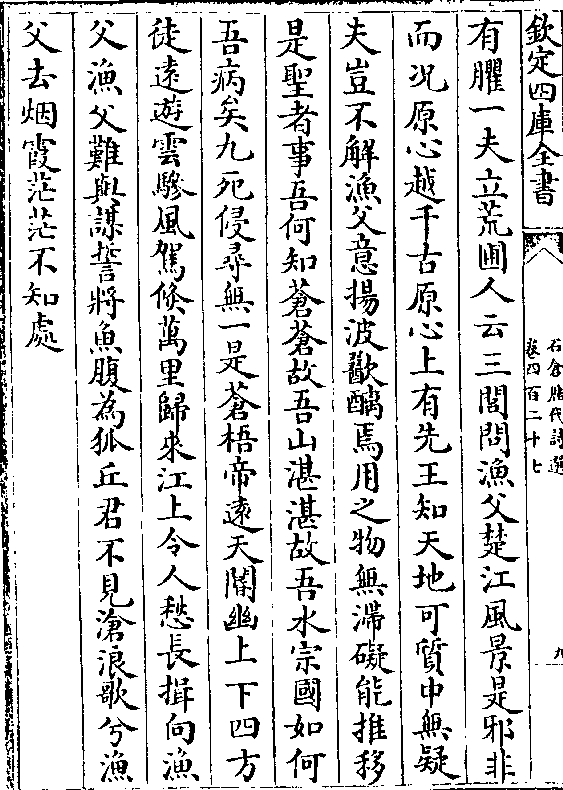 欽定四庫全書
石倉歷代詩選
卷四百二十七
九
有臞一夫立荒圃人云三閭問漁父楚江風景是邪非
而况原心越千古原心上有先王知天地可質中無疑
夫豈不解漁父意揚波歠醨焉用之物無滯礙能推移
是聖者事吾何知蒼蒼故吾山湛湛故吾水宗國如何
吾病矣九死侵尋無一是蒼梧帝遠天閽幽上下四方
徒遠遊雲驂風駕倐萬里歸來江上令人愁長揖向漁
父漁父難與謀誓將魚腹為狐丘君不見滄浪歌兮漁
父去烟霞茫茫不知處